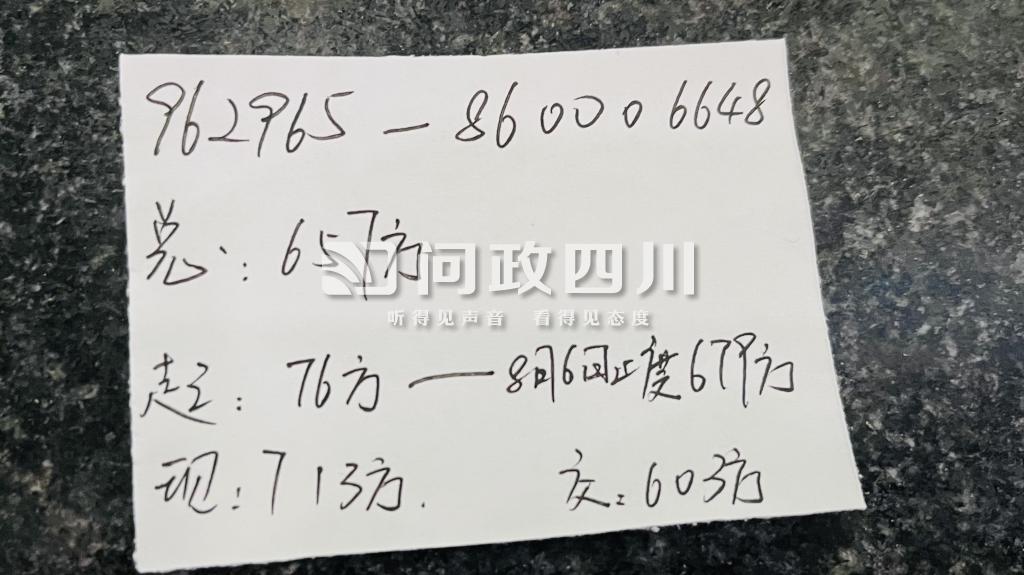 962965-860006648
总:657方
问政四川
听得见声音 看得见态度
起:76方—8月6日止度679方
现:713方. 交:603方